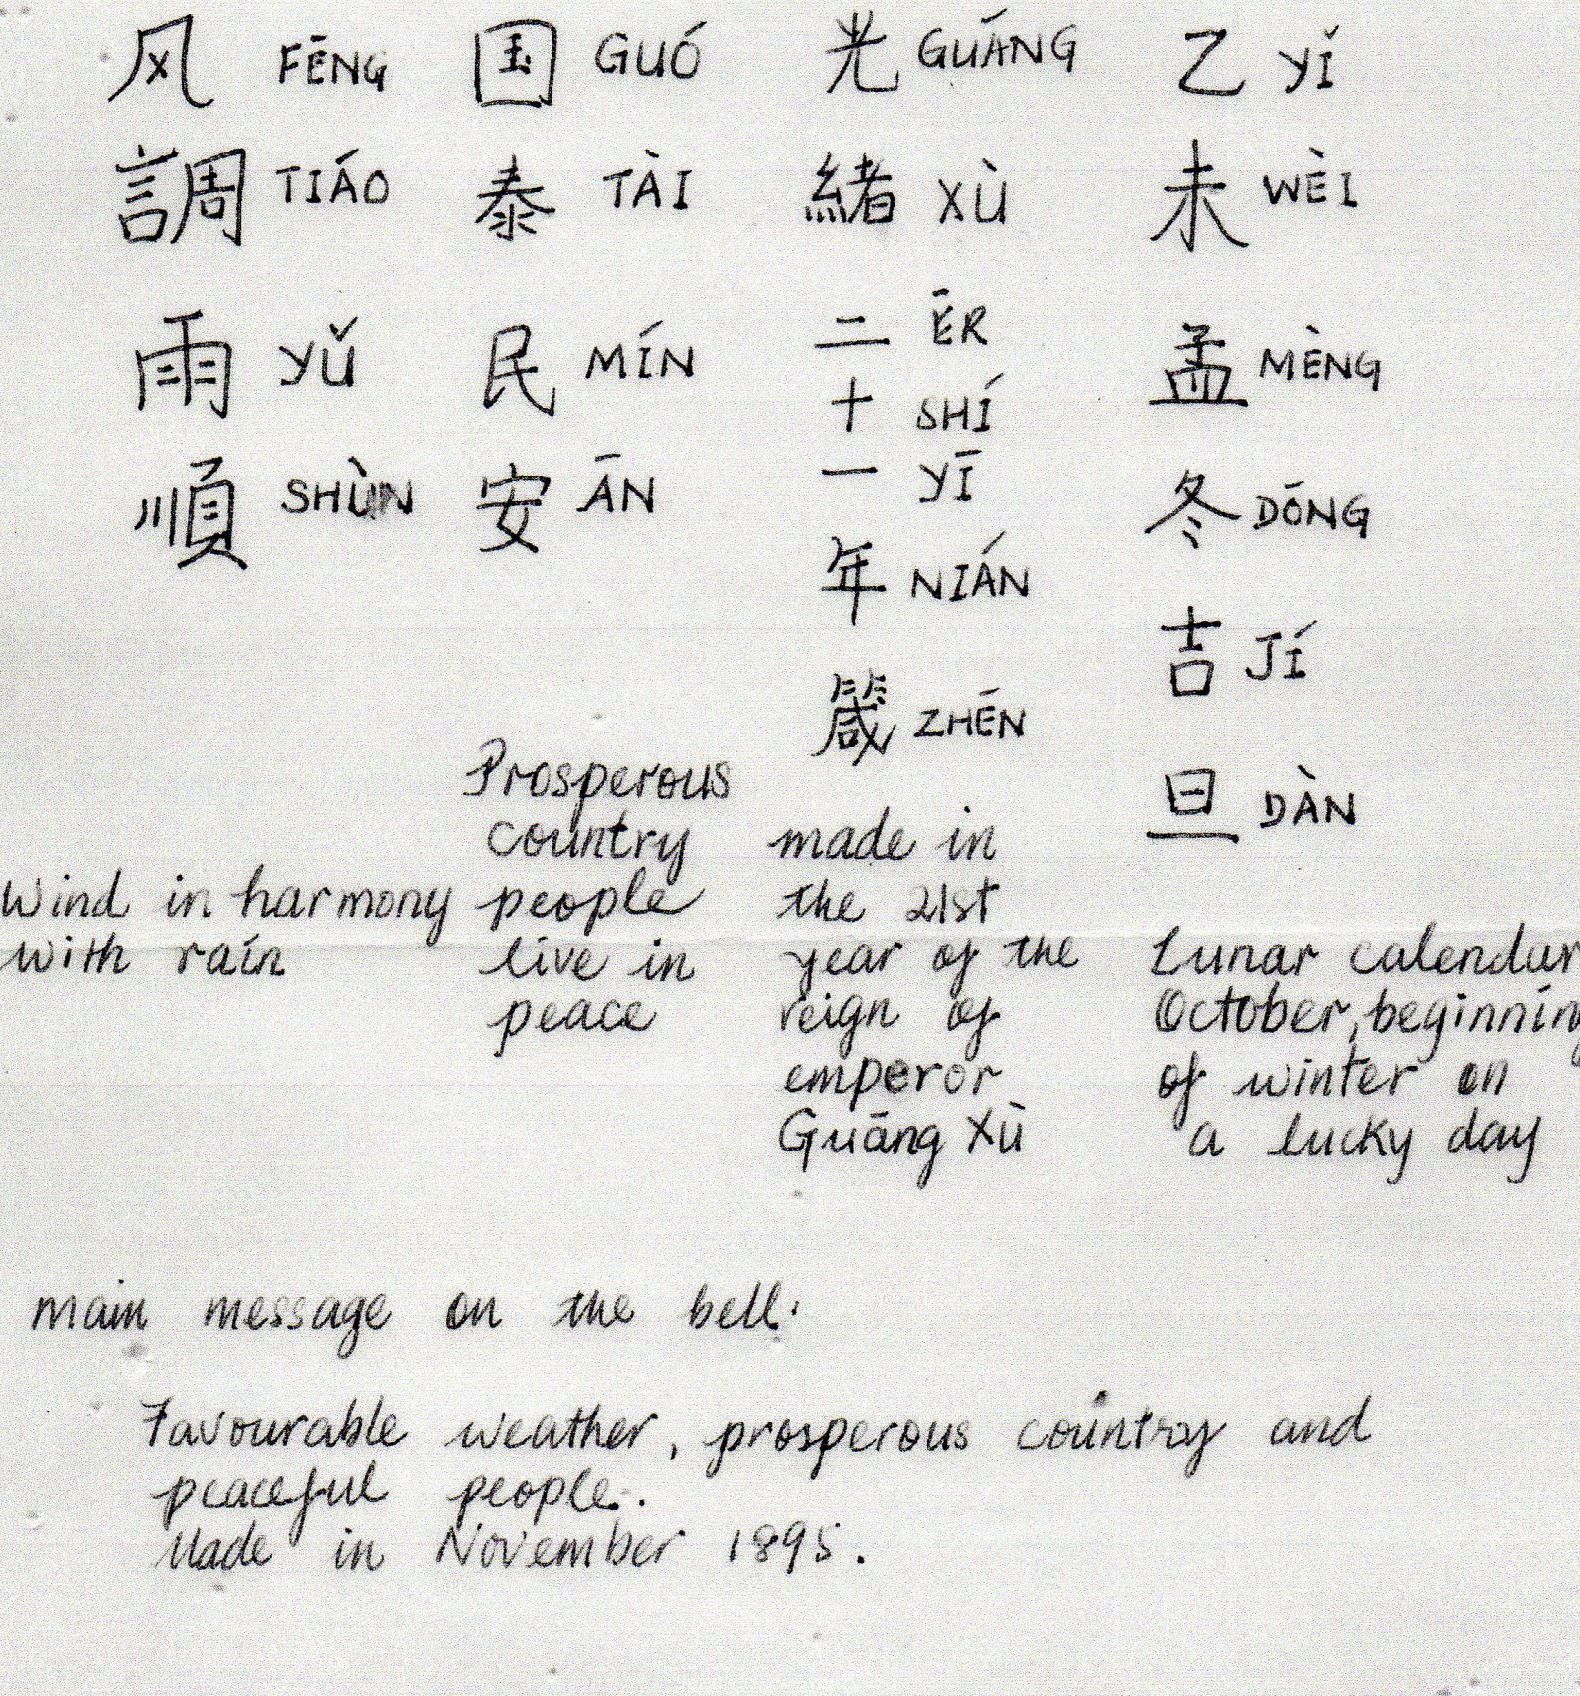 风 FĒNG 国 GUÓ 光 GUĀNG 乙 YǏ
調 TIÁO 泰 TÀI 緒 XÙ 未 WÈI
雨 YǓ 民 MÍN 二 ĒR 孟 MÈNG
十 SHÍ
順 SHÙN 安 ĀN 一 YĪ 冬 DŌNG
年 NIÁN
吉 JÍ
箴 ZHĒN
旦 DÀN
Prosperous
country
people
live in
peace
Wind in harmony
with rain
made in
the 21st
year of the
reign of
emperor
Guāng Xù
Lunar calendar
October, beginning
of winter on
a lucky day
main message on the bell:
Favourable weather, prosperous country and
peaceful people.
Made in November 1895.